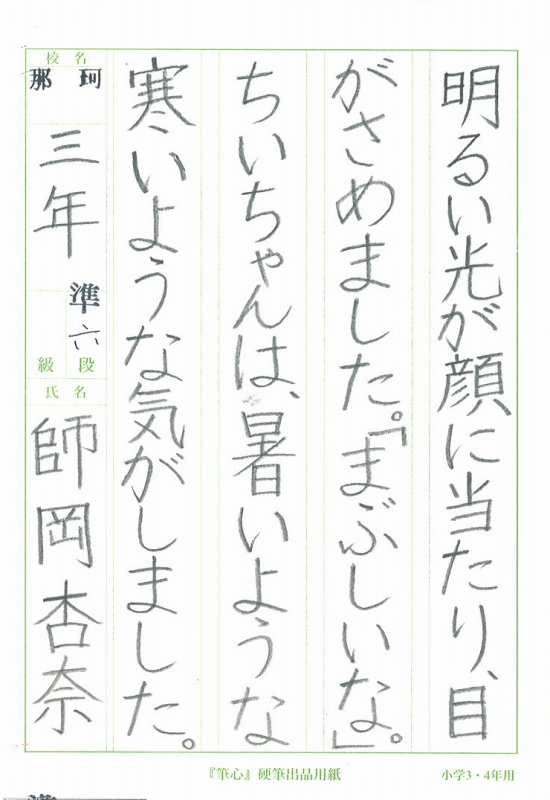 明るい光が顔に当たり、目
がさめました。「まぶしいな。」
ちいちゃんは、暑いような
寒いような気がしました。
校名
那珂
三年
準六
級段
氏名
師岡杏奈
『筆心』硬筆出品用紙
小学3・4年用